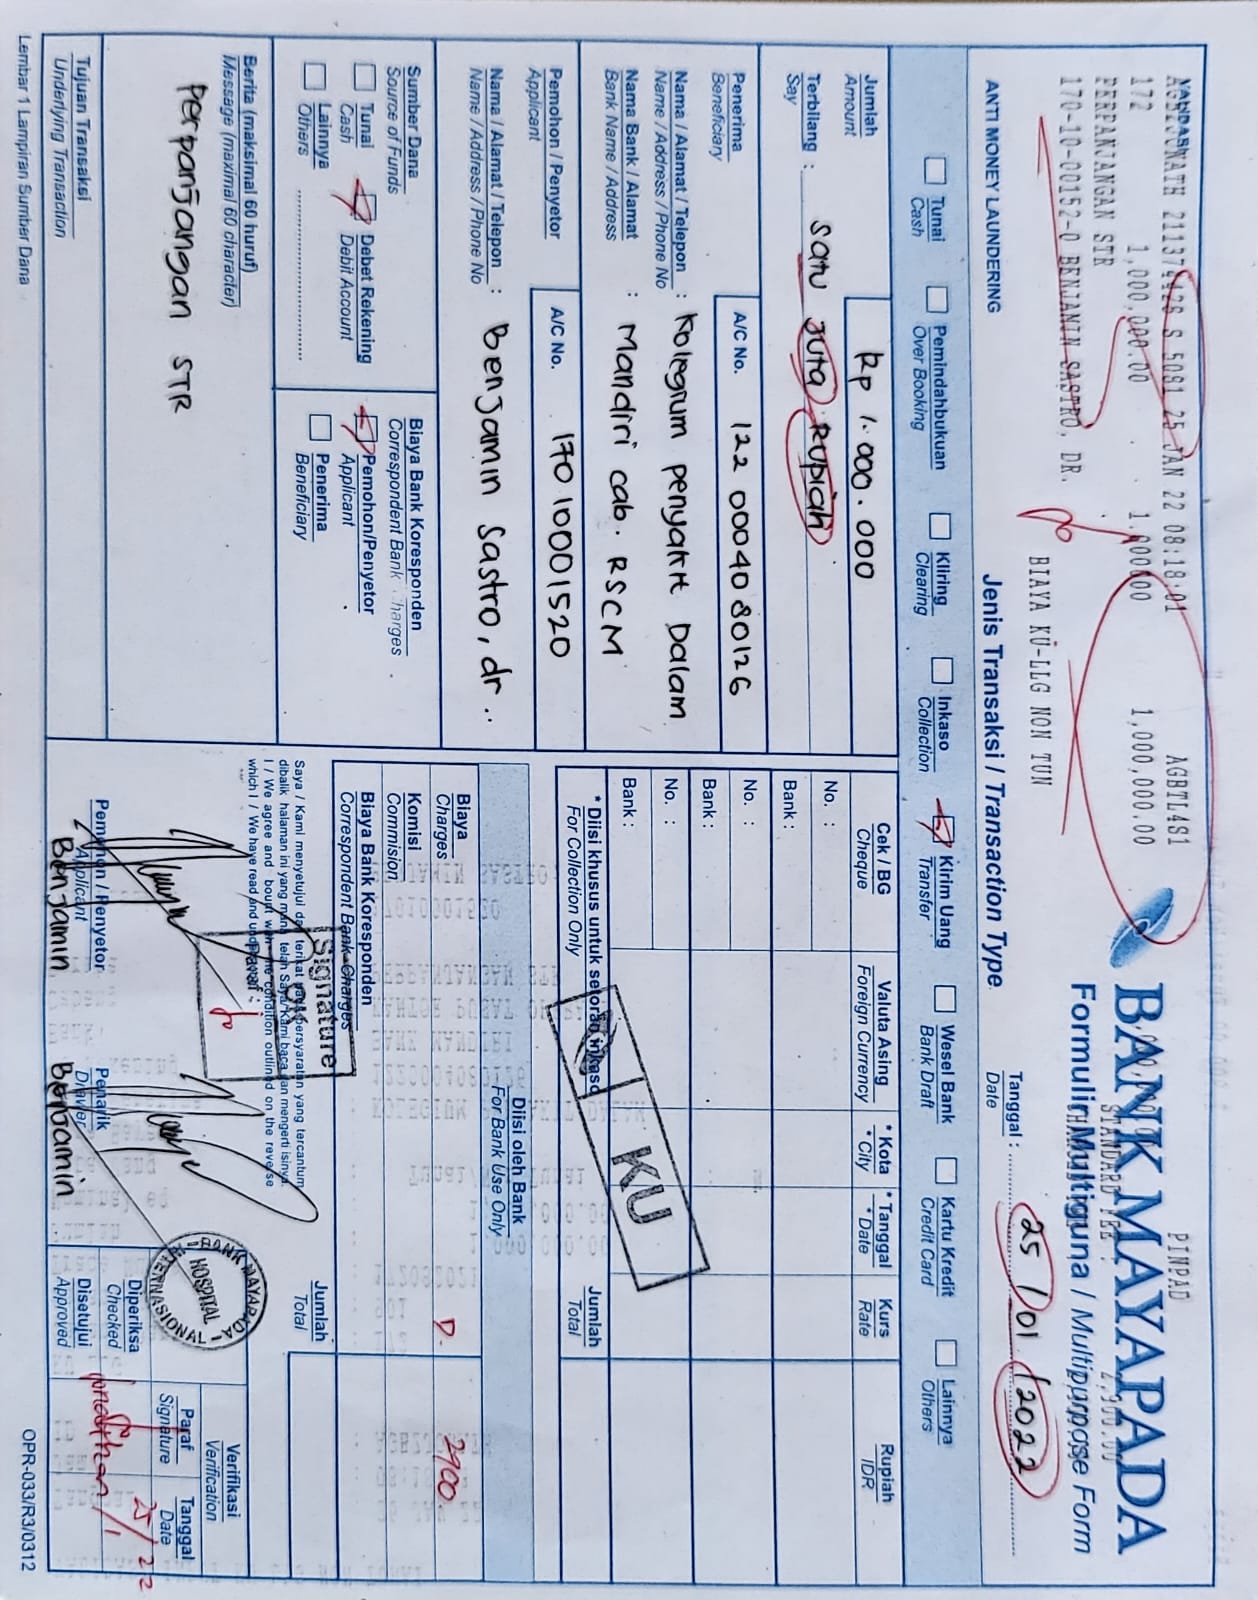 AGBTL4S1 PINPAD
172 1,000,000.00 1,000,000.00
PERPANJANGAN STR
170-10-00152-0 BENJAMIN SASTRO, DR.
BIAYA KU-LLG NON TUN
BANK MAYAPADA
Formulir Multiguna / Multipurpose Form
ANTI MONEY LAUNDERING
Jenis Transaksi / Transaction Type.
Tanggal : 25/01/2022
Date
Tunai
Cash
Pemindahbukuan
Over Booking
Kliring
Clearing
Inkaso
Collection
Kirim Uang
Transfer
Wesel Bank
Bank Draft
Kartu Kredit
Credit Card
Lainnya
Others
Jumlah
Amount
Rp 1.000.000
Terbilang :
Say
satu juta RUPIAH
Penerima
Beneficiary
A/C No. 122 00040 80126
Nama / Alamat / Telepon : Kolegium penyakit Dalam
Name / Address / Phone No
Nama Bank / Alamat : Mandiri cab. RSCM
Bank Name / Address
Pemohon / Penyetor
Applicant
A/C No. 170 10001520
Nama / Alamat / Telepon : Benjamin Sastro, dr..
Name / Address / Phone No
Sumber Dana
Source of Funds
Tunai
Cash
Debet Rekening
Debit Account
Lainnya
Others
Biaya Bank Koresponden
Correspondent Bank Charges
Pemohon/Penyetor
Applicant
Penerima
Beneficiary
Berita (maksimal 60 huruf)
Message (maximal 60 character)
Perpanjangan STR
Tujuan Transaksi
Underlying Transaction
Lembar 1 Lampiran Sumber Dana
Cek / BG
Cheque
Valuta Asing
Foreign Currency
* Kota
* City
* Tanggal
* Date
Kurs
Rate
Rupiah
IDR
No. :
Bank :
No. :
Bank :
No. :
Bank :
* Diisi khusus untuk setoran inkaso
For Collection Only
Jumlah
Total
KU
Diisi oleh Bank
For Bank Use Only
Biaya
Charges
2900
Komisi
Commision
Biaya Bank Koresponden
Correspondent Bank Charges
Jumlah
Total
Saya / Kami menyetujui dan terikat pada persyaratan yang tercantum
dibalik halaman ini yang mana telah Saya/Kami baca dan mengerti isinya.
I / We agree and bound with the condition outlined on the reverse
which I / We have read and understood
Signature
Paraf :
Pemohon / Penyetor
Applicant
Benjamin
Penarik
Drawer
Benjamin
BANK MAYAPADA
HOSPITAL
Verifikasi
Verification
Paraf
Signature
Tanggal
Date
Diperiksa
Checked
Disetujui
Approved
OPR-033/R3/0312